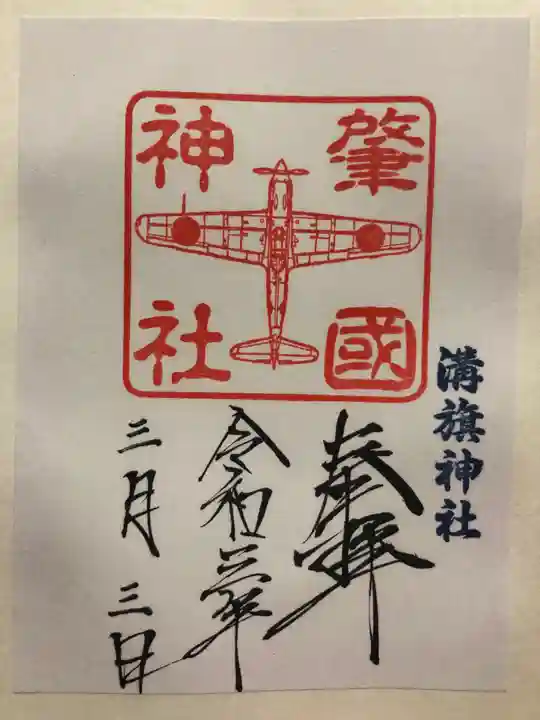 肇國
神社
溝旗神社
奉拝
令和三年
三月三日